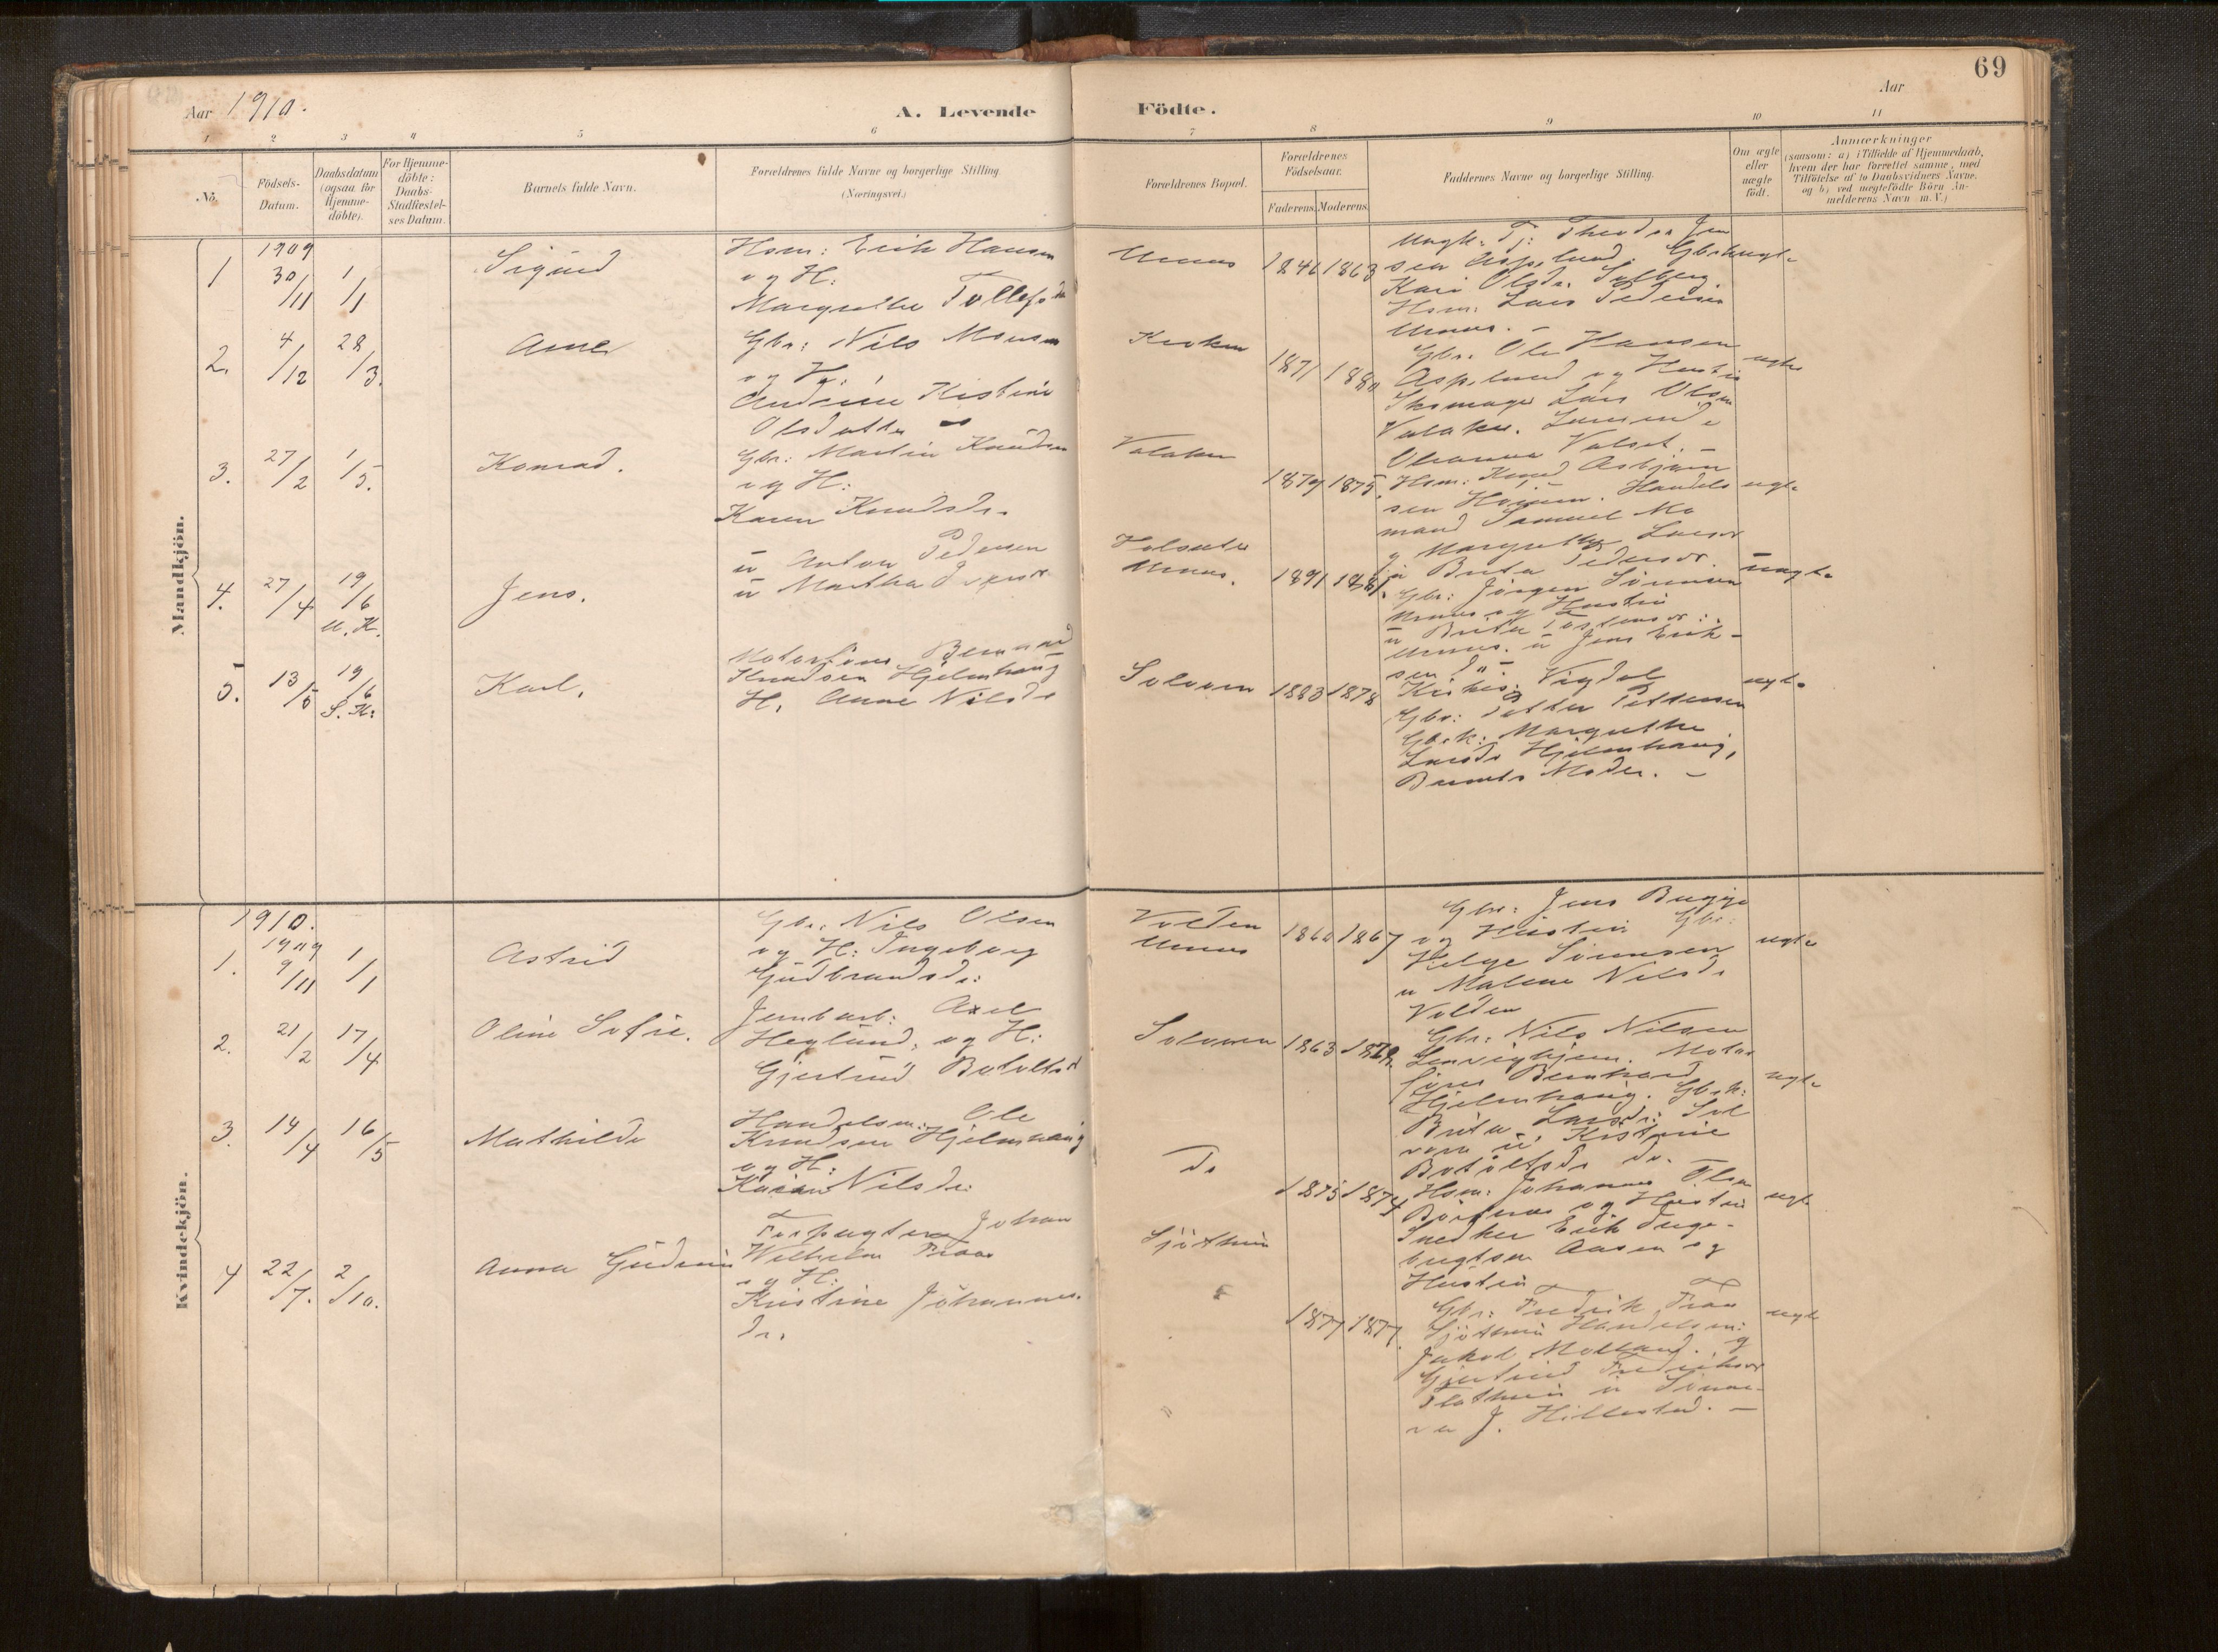 69
Aar 1910.
A. Levende
Födte.
Aar
1 2 3 4 5 6 7 8 9 10 11
No.
Födsels-
Datum.
Daabsdatum
(ogsaa for
Hjemme-
döbte).
For Hjemme-
döbte:
Daabs-
Stadfæstel-
ses Datum.
Barnets fulde Navn.
Forældrenes fulde Navne og borgerlige Stilling
(Næringsvei.)
Forældrenes Bopæl.
Forældrenes
Födselsaar.
Faderens. Moderens.
Faddernes Navne og borgerlige Stilling.
Om ægte
eller
uægte
födt.
Anmærkninger
(saasom: a) i Tilfælde af Hjemmedaab,
hvem der har forrettet samme, med
Tilföielse af to Daabsvidners Navne,
og b) ved uægtefödte Börn An-
melderens Navn m. V.)
Mandkjön.
1
1909
30/11
1/1
Sigurd
Hsm: Erik Hansen
og H:
Margrethe Tollefsdr
Urnes
1846 1863
Ungk. Tj: Theodor Jen
sen Asplund. Gbrk
Kari Olsdr. Solberg
Hsm: Lars Pedersen
Urnes. -
ægte
2.
4/12
28/3.
Arne
Gbr: Nils Monsen
og H:
Andrine Kristine
Olsdatter
Kroken
1871 1880
Gbr. Ole Hansen
Asplund og Hustru
Skomager Lars Olsen
Valaker.
Oleanna
ægte
3.
27/2
1/5.
Konrad.
Gbr: Martin Knudsen
og H:
Karen Knudsdr.
Valaker
1879 1875.
Hsm: Knud Asbjørn
sen Handels
mand Samuel Mo
Margrethe Larsdr
ægte
4.
27/4
19/6
U. K.
Jens.
u Anton Pedersen
u Martha
Urnes.
1891 1881.
u Brita Pedersdr.
Gbr: Jörgen Sörensen
Urnes og Hustru
u Brita
Urnes. u Jens Erik-
sen do -
uægte
5.
13/5
19/6
S. K:
Karl.
Bernhard
Knudsen Hjelmhaug
H. Anne Nilsdr
Solvorn
1883 1878
Vigdal
Gbr: Petter Pettersen
Gbrk: Margrethe
Larsdr Hjelmhaug,
Barnets Moder. -
ægte
Kvindekjön.
1910.
1.
1909
9/11
1/1
Astrid
Gbr: Nils Olsen
og H: Ingeborg
Gudbrandsdr:
Volden
Urnes
1860 1867
Gbr: Jens Bugge
og Hustru Gbr:
Helge Sörensen
u Malene Nilsdr
Volden
ægte
2.
21/2
17/4
Oline Sofie.
Jernbarb: Axel
Heglund, og H:
Gjertrud Botolfsd
Solvorn
1863 1872.
Gbr. Nils Nilsen
Motor
förer Bernhard
Hjelmhaug. Gbrk:
Brita Larsdr: Sol
vorn u Kristine
Botolfsdr do.
ægte
3.
14/4
16/5
Mathilde
Handelsm: Ole
Knudsen Hjelmhaug
og H:
Karen Nilsdr:
do
1875 1874
Hsm: Johannes Olsen
og Hustru
Snedker Erik Inge-
brigtsen Aasen og
Hustru
ægte
4
22/7.
2/10.
Anna Gudrun
Forpagter Johan
Wilhelm Fraas
og H:
Kristine Johannes.
dr.
1877 1877.
Gbr: Fredrik
Handelsm:
Jakob Molland. og
Gjertrud Fredriksdr
J. Hillestad. -
ægte